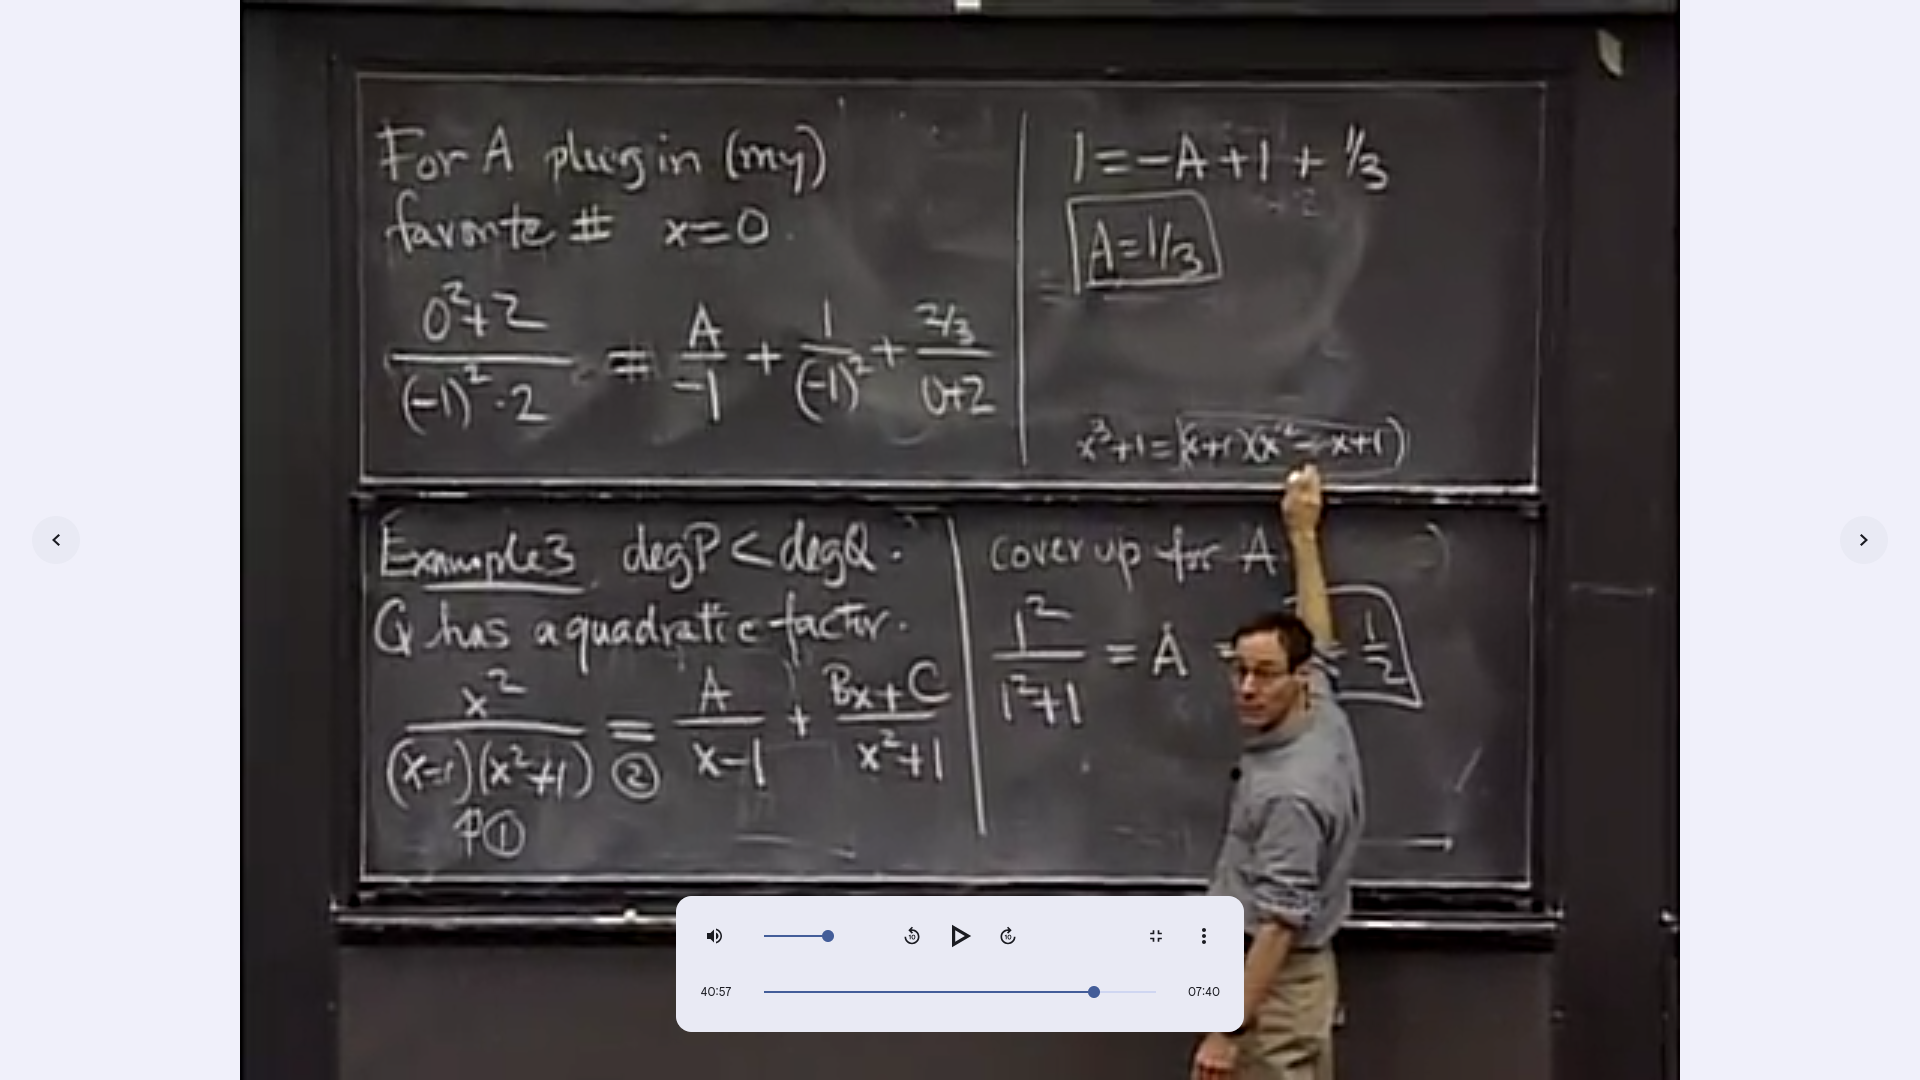 For A plug in (my)
favorite # x=0.
0²+2 / (-1)²·2 = A/-1 + 1/(-1)² + 2/3 / 0+2
1=-A+1+1/3
A=1/3
x³+1=(x+1)(x²-x+1)
Example 3 degP < degQ.
Q has a quadratic factor.
x² / (x-1)(x²+1) = A/x-1 + Bx+C/x²+1
②
↑①
cover up for A
1²/1²+1 = A = 1/2
10
10
40:57
07:40